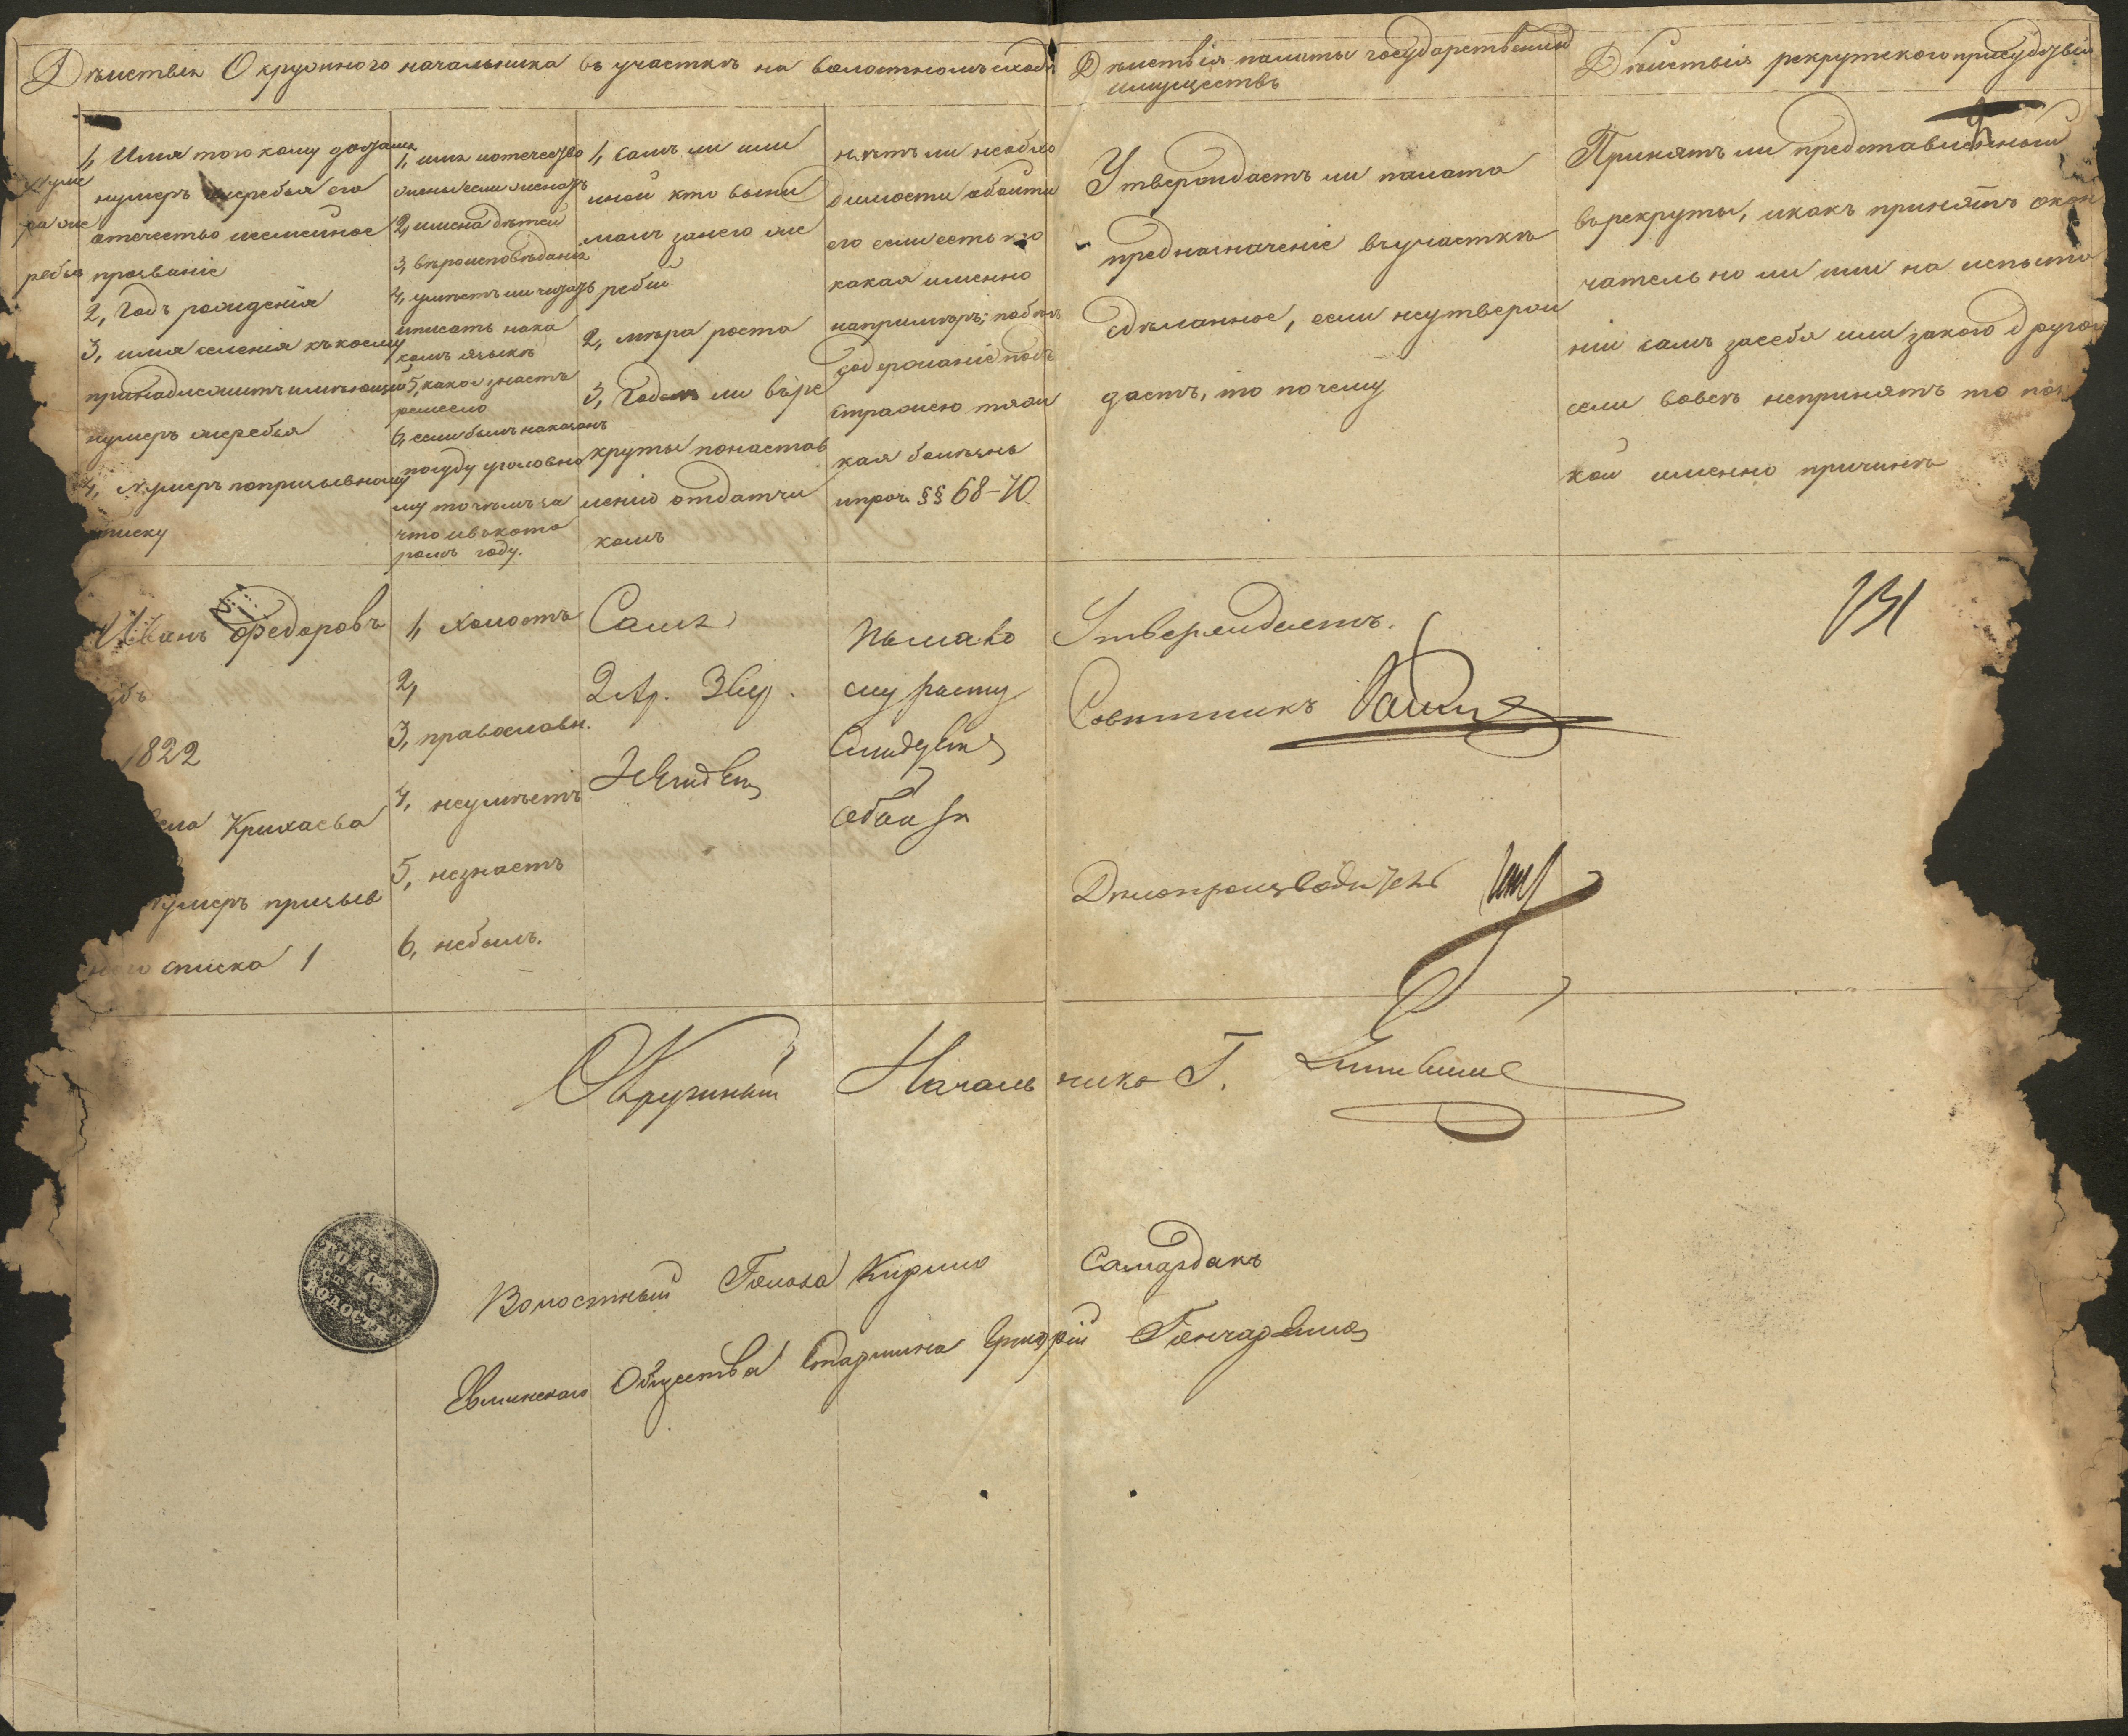 Дѣйствія Окружнаго начальника въ участкѣ на волостномъ сходѣ
Дѣйствія палаты государственныхъ
имуществъ
Дѣйствія рекрутского присудствія
Нуме
ра же
ребья
1, Имя того кому достался
нумеръ жеребья его
отечество и семейное
прозваніе
2, Годъ рожденія
3, имя селенія къ коему
принадлежитъ имѣющій
нумеръ жеребья
4, Нумеръ по призывному
списку
1, имя и отечество
жены если женатъ
2, имена дѣтей
3, вѣроисповѣданіе
4, умѣетъ ли читать
и писать и на ка
комъ языкѣ
5, какое знаетъ
ремесло
6, если былъ наказанъ
по суду уголовно
му то чѣмъ за
что и въ кото
ромъ году.
1, самъ ли или
иной кто выни
малъ за него же
ребій
2, мѣра роста
3, Годенъ ли въ ре
круты по настав
ленію отдатчи
камъ
нѣтъ ли необхо
димости обойти
его если есть то
какая именно
напримѣръ; побѣгъ
содержаніе подъ
стражею тяж
кая болѣзнь
и проч. §§ 68-70.
Утверждаетъ ли палата
предназначеніе въ участкѣ
сдѣланное, если не утверж
даетъ, то почему
Принятъ ли представленный
въ рекруты, и какъ принятъ окон
чательно ли или на испыта
ніи самъ за себя или за кого другого
если вовсе непринятъ то по
кой именно причинѣ
Иванъ Федоровъ
1822
села Крихаева
нумеръ призыв
ного списка 1
1, холостъ
2,
3, православн.
4, неумѣетъ
5, незнаетъ
6, небылъ.
Самъ
2 Ар. 3 вер.
По мало
му росту
Утверждаетъ.
Совѣтникъ
Дѣлопроизводитель
131
Окружный Начальникъ Г.
ВОЛОСТЬ
Волостный Голова Кирило Самардакъ
Общества Старшина Григорій Гончаренко